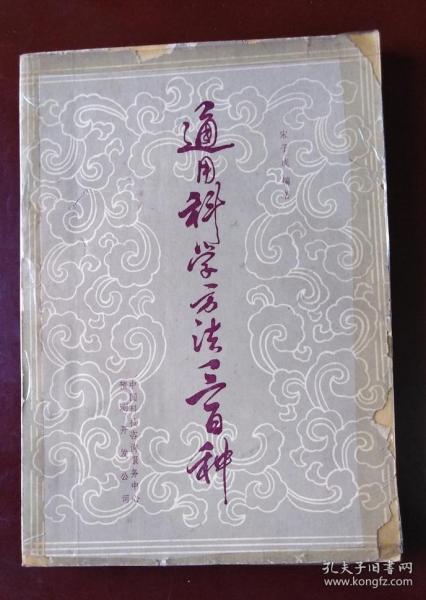 通用科学方法三百种
宋子成 编著
中国科协咨询服务中心
预测开发公司
孔夫子旧书网
www.kongfz.com